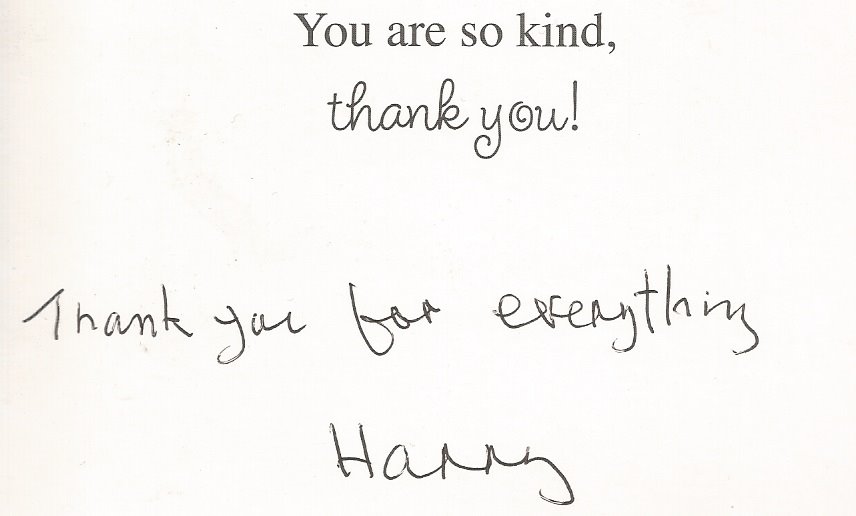 You are so kind,
thank you!
Thank you for everything
Harry